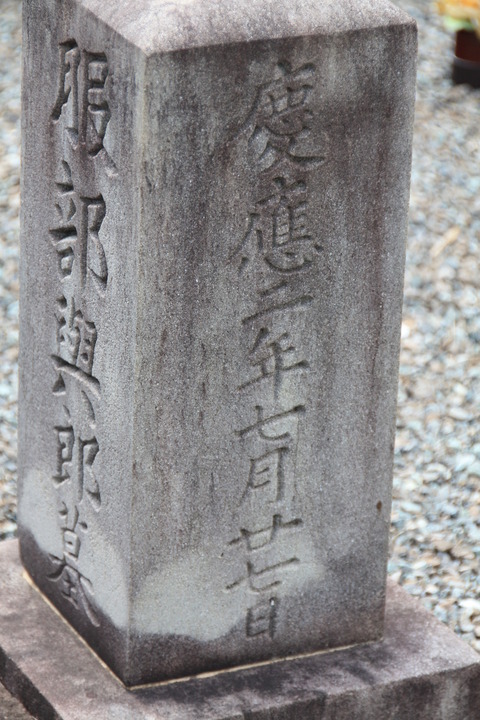 服部與八郎墓
慶應二年七月廿七日